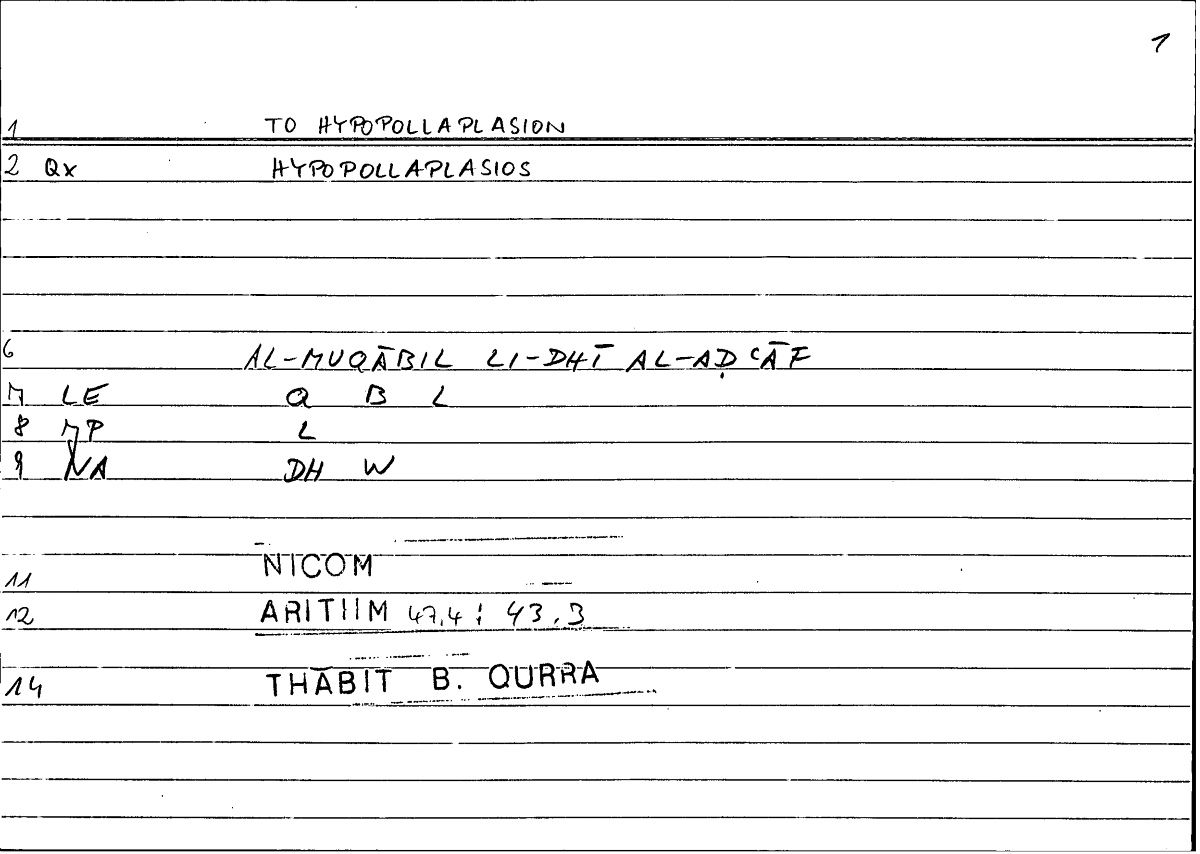 1
1 TO HYPOPOLLAPLASION
2 Qx HYPOPOLLAPLASIOS
6 AL-MUQĀBIL LI-DHĪ AL-AḌʿĀF
7 LE Q B L
8 MP L
9 NA DH W
11 NICOM
12 ARITHM 47,4 : 43,3
14 THĀBIT B. QURRA